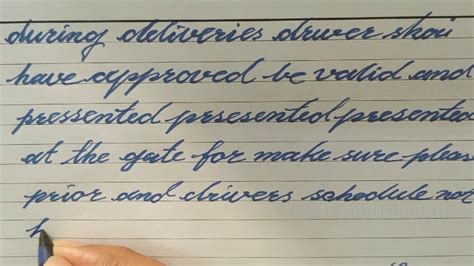 during deliveries driver shou
have approved be valid and
pressented presesented presented
at the gate for make sure pleas
prior and drivers schedule not